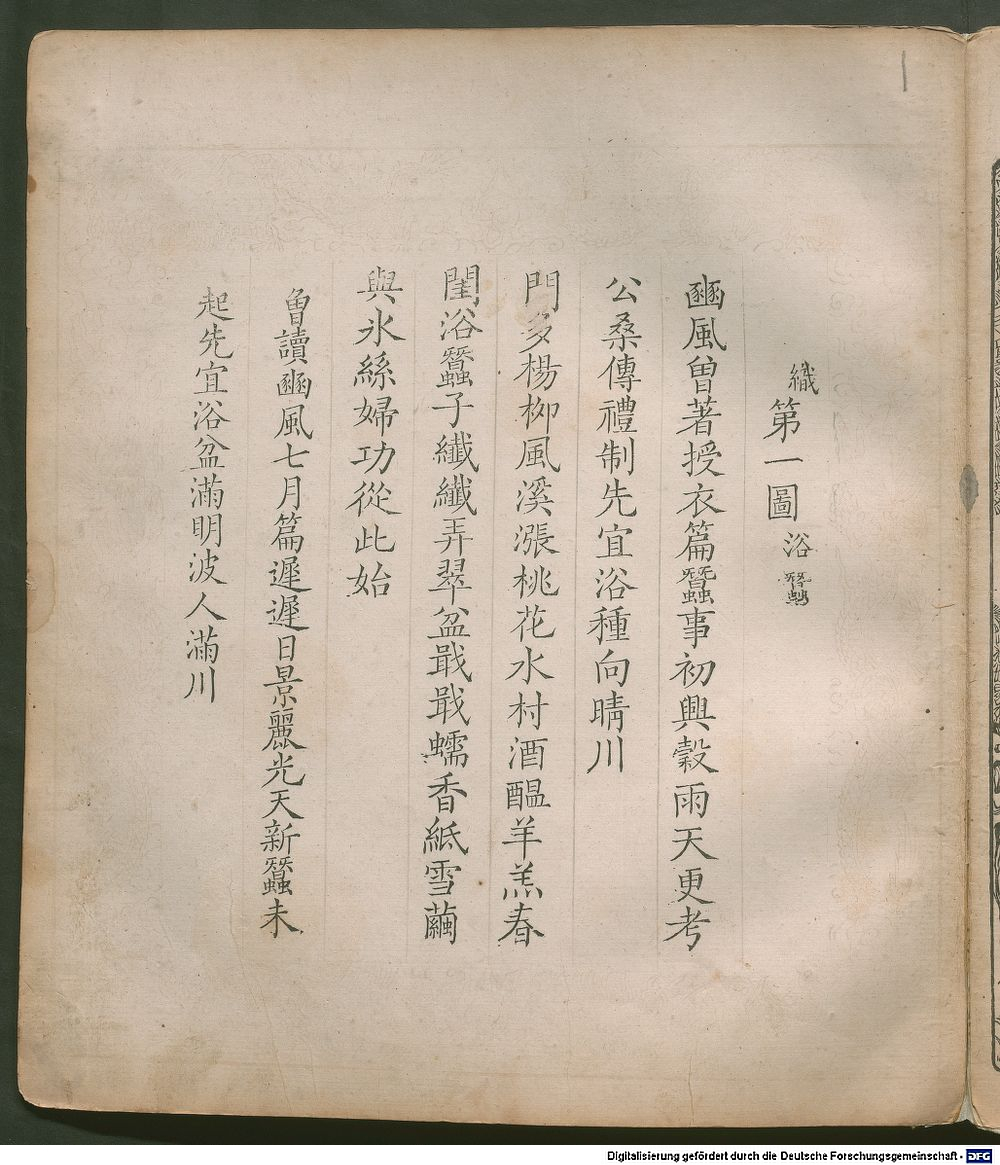 1
織第一圖浴蠶
豳風曾著授衣篇蠶事初興穀雨天更考
公桑傳禮制先宜浴種向晴川
門多楊柳風溪漲桃花水村酒醖羊羔春
閨浴蠶子纖纖弄翠盆戢戢蠕香紙雪繭
與氷絲婦功從此始
曾讀豳風七月篇遲遲日景麗光天新蠶未
起先宜浴盆滿明波人滿川
Digitalisierung gefördert durch die Deutsche Forschungsgemeinschaft - DFG